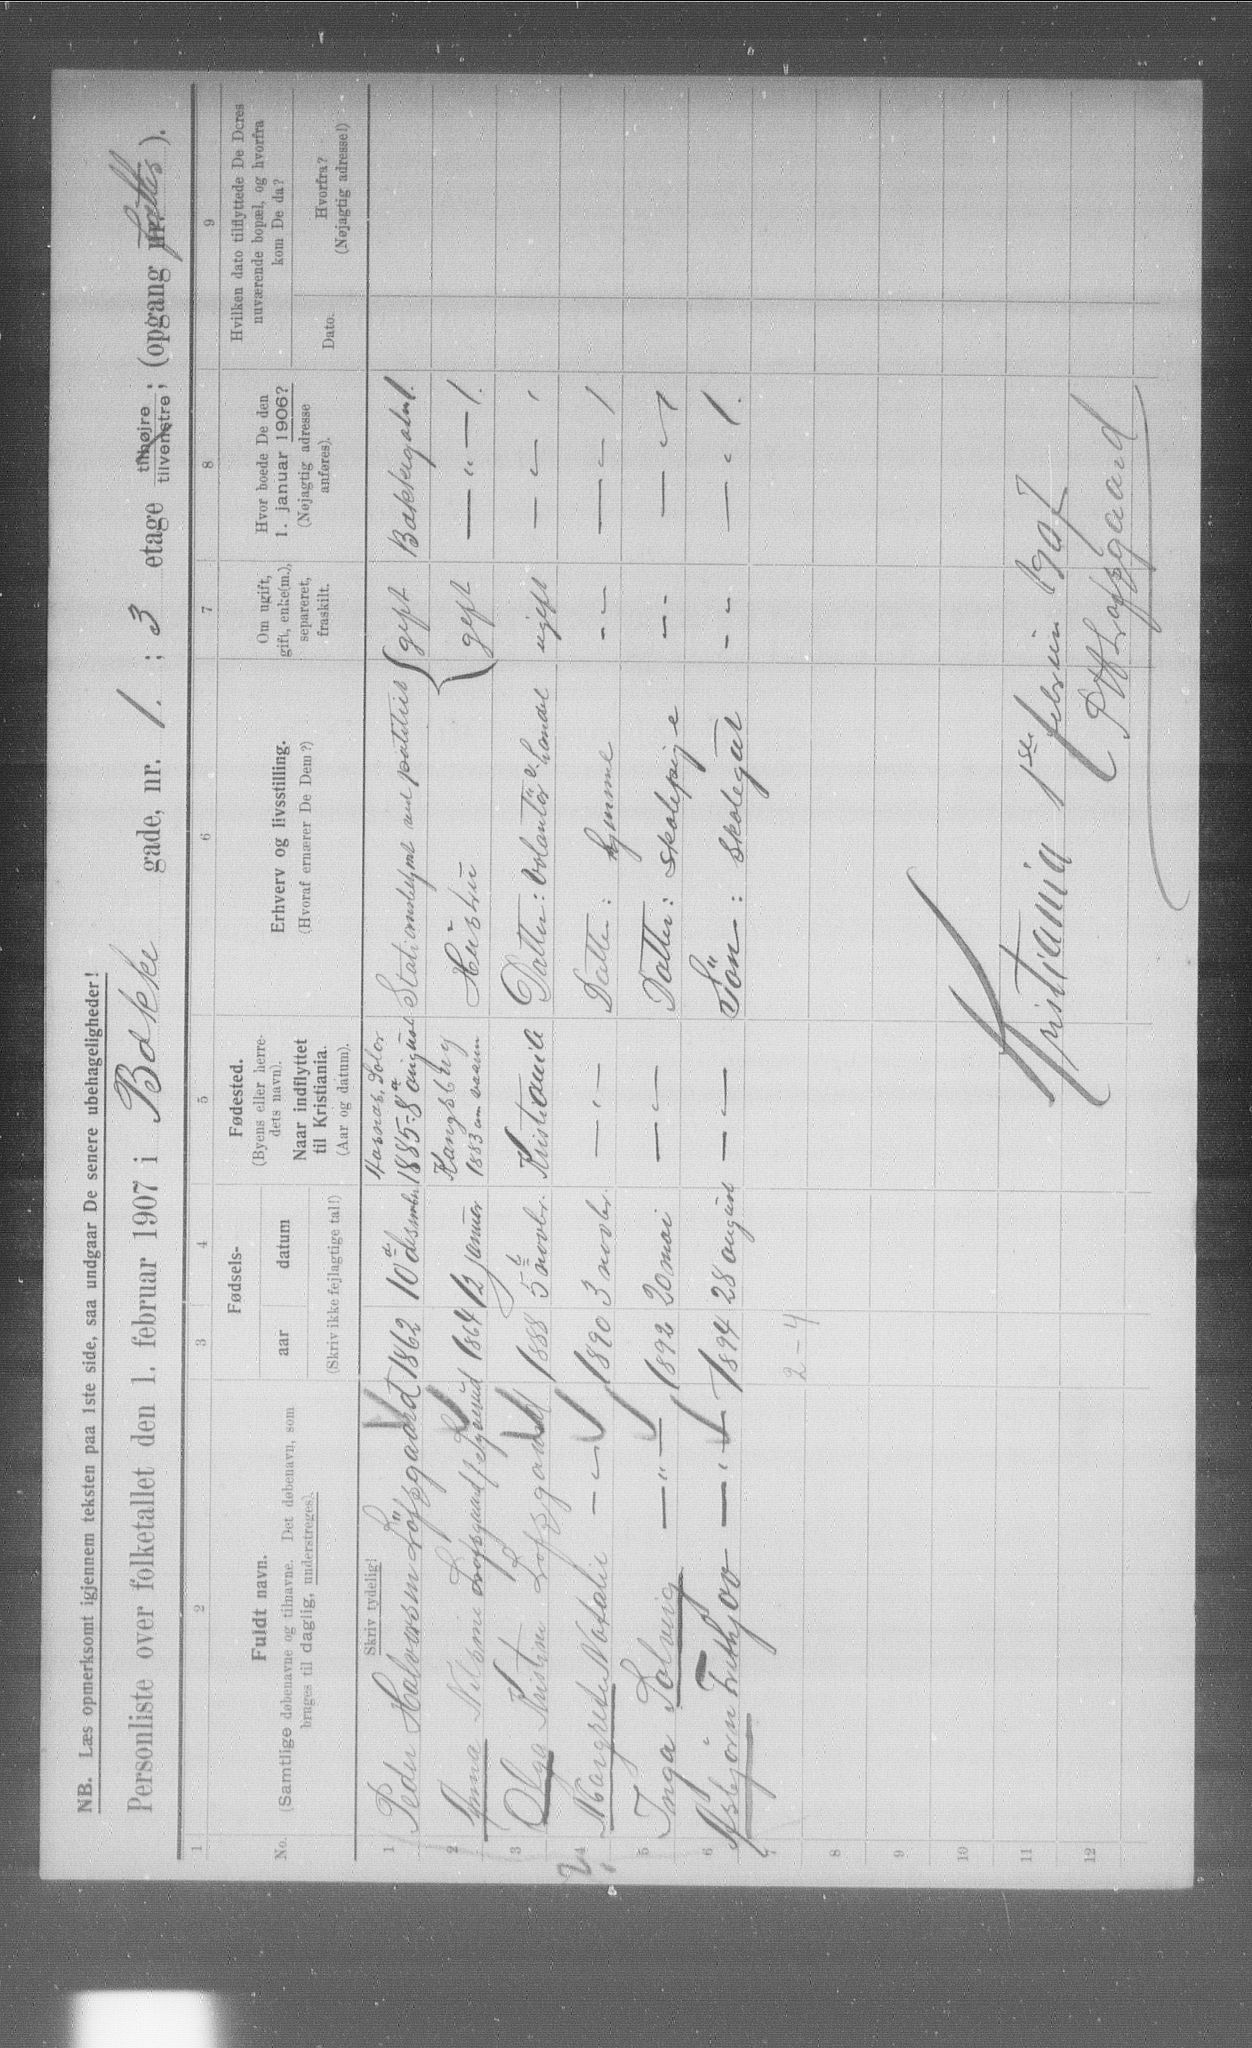 NB. Læs opmerksomt igjennem teksten paa 1ste side, saa undgaar De senere ubehageligheder!
Personliste over folketallet den 1. februar 1907 i Bakke gade, nr. 1. ; 3 etage tilhøjre tilvenstre ; (opgang ).
1 2 3 4 5 6 7 8 9
No. Fuldt navn. (Samtlige døbenavne og tilnavne. Det døbenavn, som bruges til daglig, understreges).
Fødsels- aar datum (Skriv ikke fejlagtige tal!)
Fødested. (Byens eller herredets navn). Naar indflyttet til Kristiania. (Aar og datum).
Erhverv og livsstilling. (Hvoraf ernærer De Dem?)
Om ugift, gift, enke(m.), separeret, fraskilt.
Hvor boede De den 1. januar 1906? (Nøjagtig adresse anføres).
Hvilken dato tilflyttede De Deres nuværende bopæl, og hvorfra kom De da?
Dato. Hvorfra? (Nøjagtig adresse!)
Skriv tydelig!
1 Peder Halvorsen Löfsgaard 1862 10de desember Solør 1885-8de august Stationsbetjent ved politiet gift Bakkegaden 1.
2 Anna 1864 12 januar Kongsberg 1883 om vaaren Hüstrü gift — " — 1.
3 Olga Kristine Lofsgaard 1888 5te novbr. Kristiania Datter: Volontör handel ugift — " — 1
4 Margrethe Natalie — " — 1890 3 novbr. — " — Datter: hjemme - - — " — 1
5 Inga Solveig — " — 1892 20 mai — — Datter: skolepige - - — " — 1
6 Asbjørn Frithjov — " — 1894 28 august — — Sön: skolegut - - — " — 1.
7 2 - 4
8
9
10
11
12
Kristiania 1ste februar 1907
P H Lofsgaard